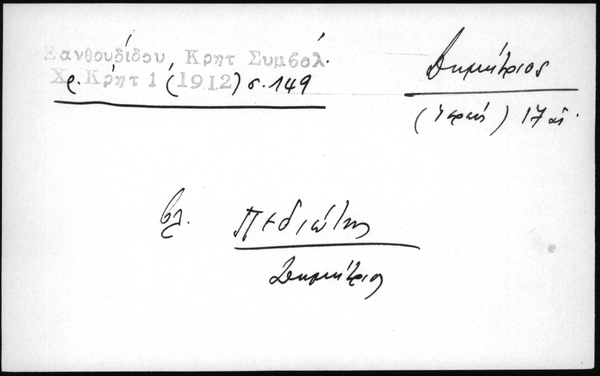 Ξανθουδίδου Κρητ Συμβολ.
Χρ. Κρητ 1 (1912) σ. 149
Δημήτριος
(Ιερεύς) 17 αἰ.
βλ. Πεδιώτης
Δημήτριος